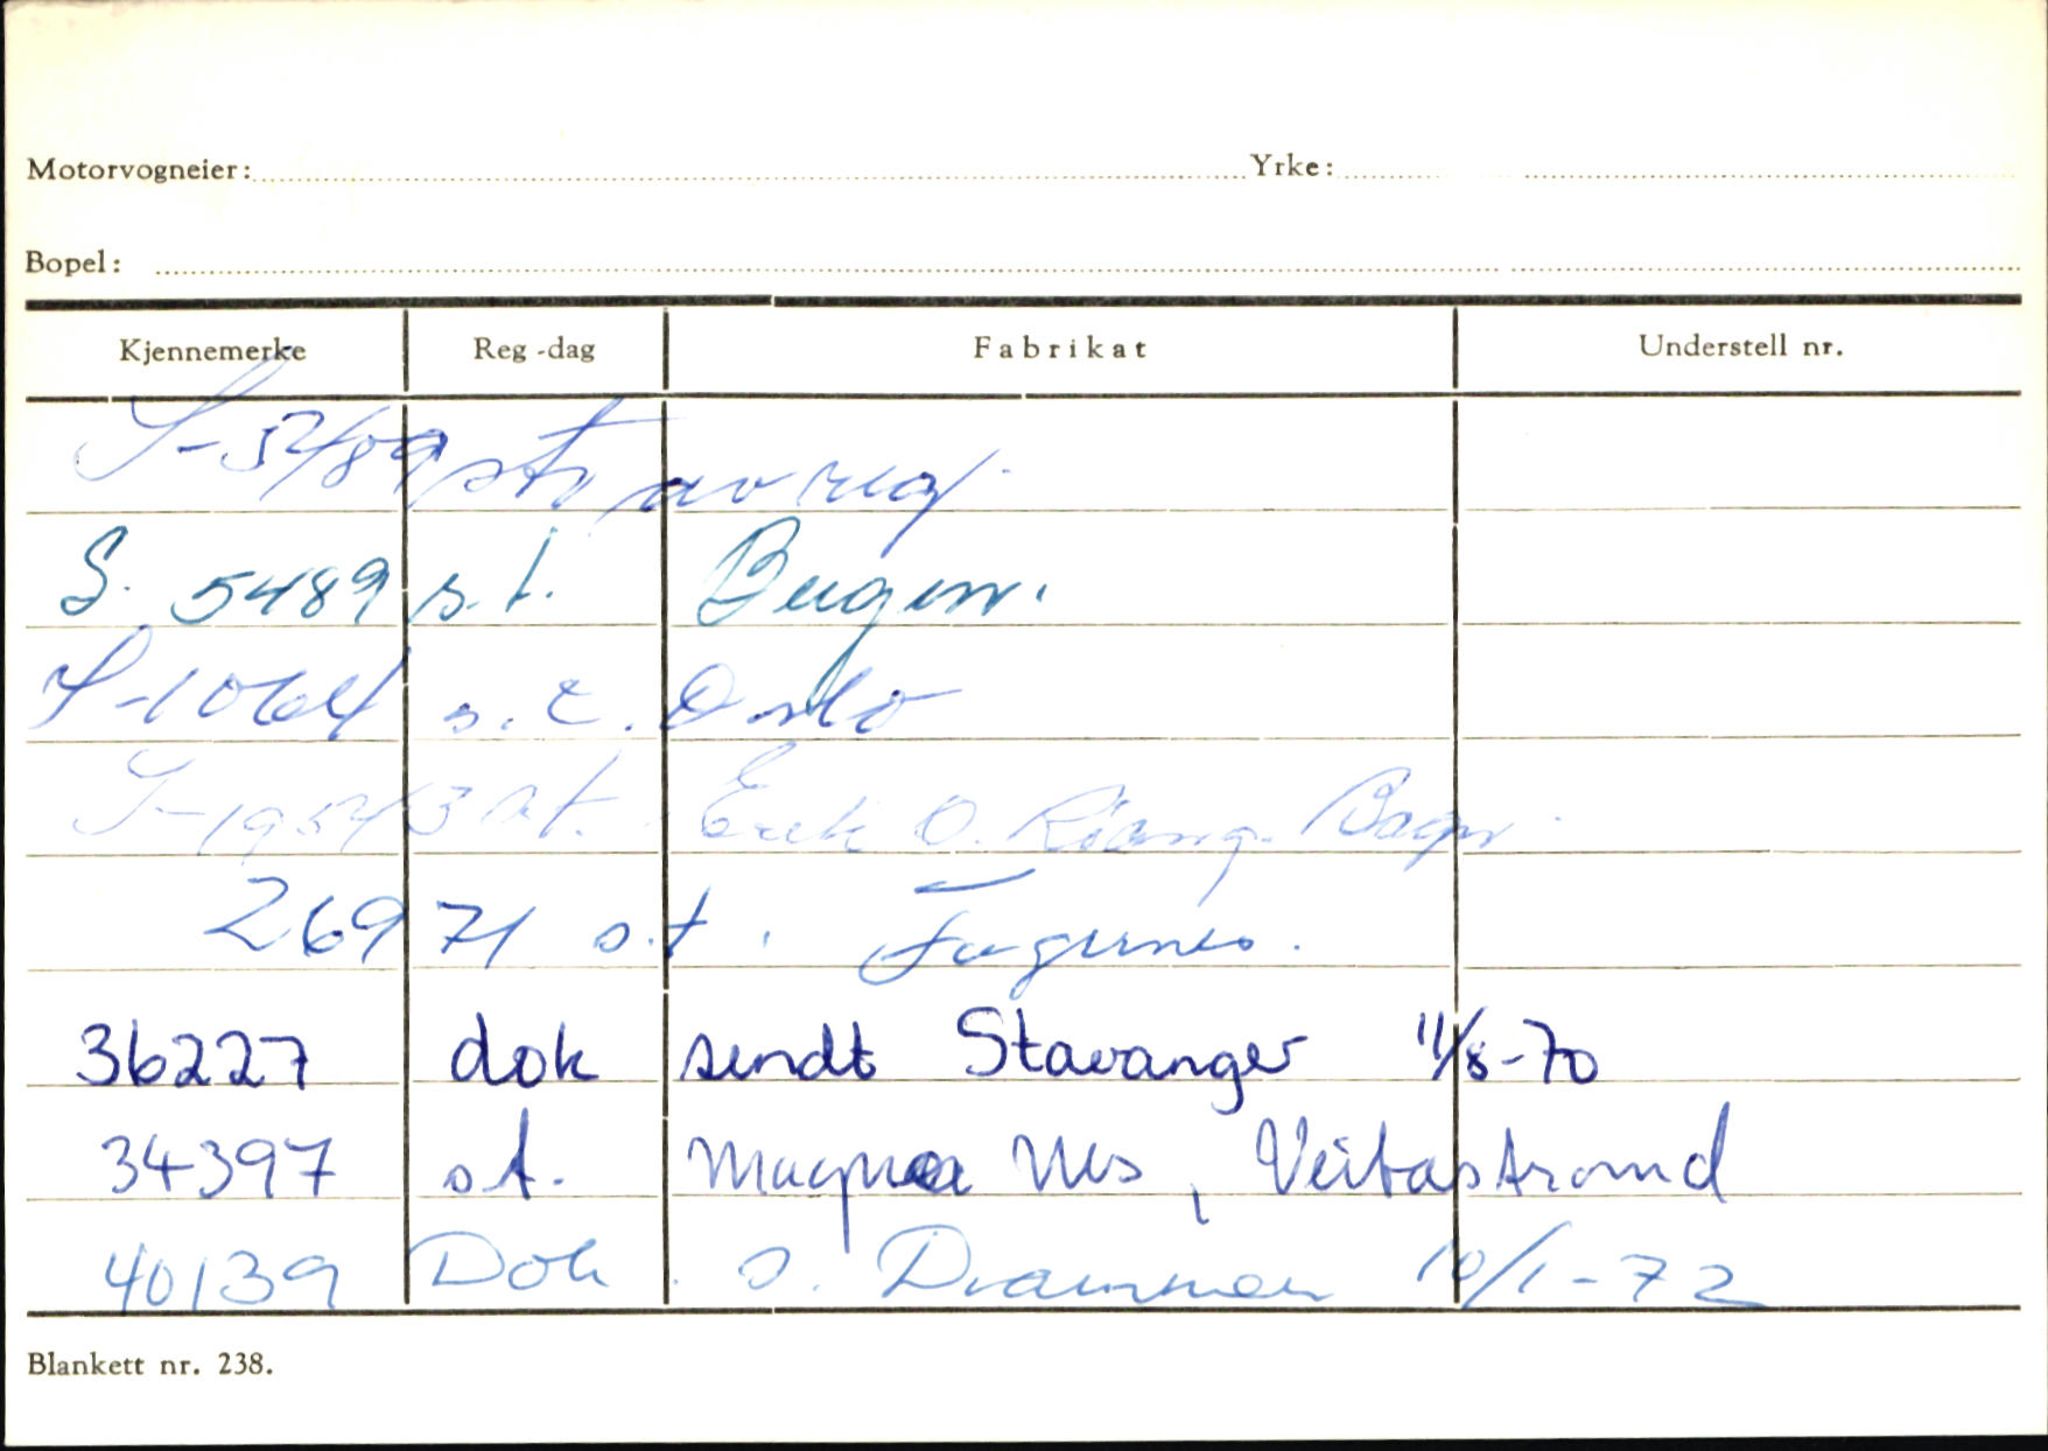 Motorvogneier: Yrke:
Bopel:
Kjennemerke Reg-dag Fabrikat Understell nr.
S-5489 av reg.
S. 5489 s.t. Bergen.
S-1064 s.t. Oslo
S-19543 s.t. Erik O.
26971 s.t. Fagernes.
36227 dok sendt Stavanger 11/8-70
34397 s.t. Magna Nes, Veitastrond
40139 Dok. s. Drammen 10/1-72
Blankett nr. 238.